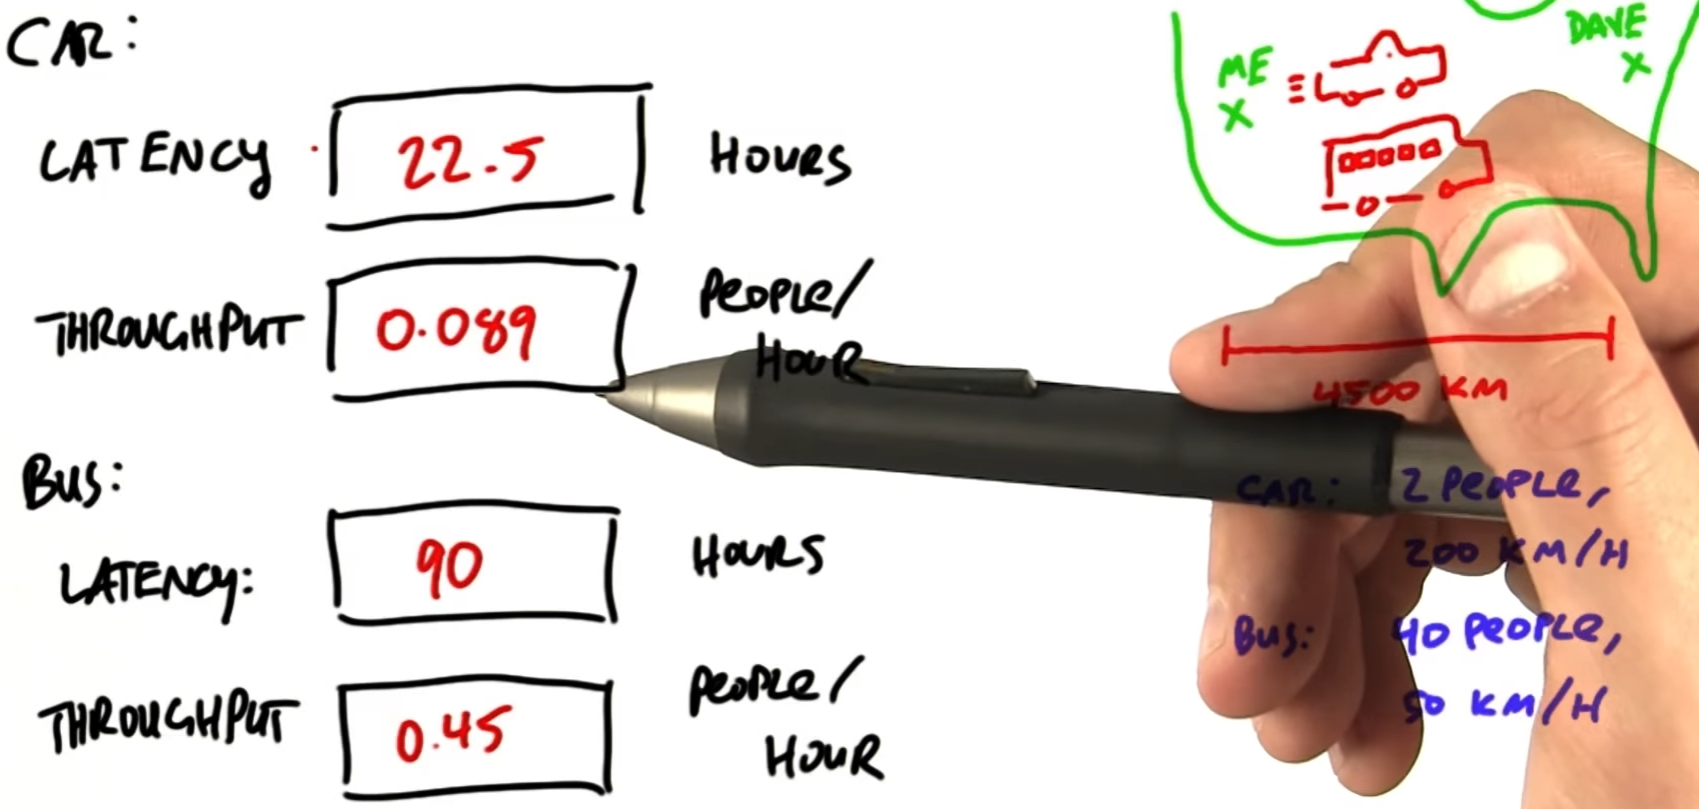 CAR:
LATENCY 22.5 HOURS
THROUGHPUT 0.089 PEOPLE/
HOUR
BUS:
LATENCY: 90 HOURS
THROUGHPUT 0.45 PEOPLE/
HOUR
ME
X
DAVE
X
4500 KM
CAR: 2 PEOPLE,
200 KM/H
BUS: 40 PEOPLE,
50 KM/H